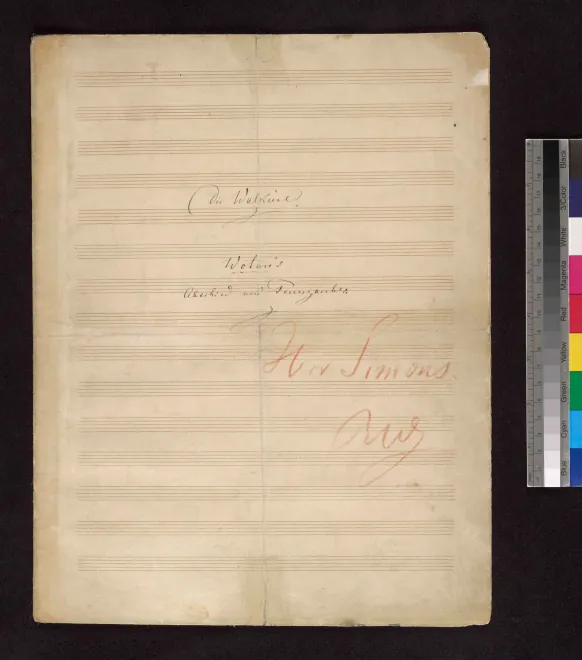 Die Walküre.
Wotan's
Abschied und Feuerzauber.
Herr Simons.
Black
3/Color
White
Magenta
Red
Yellow
Green
Cyan
Blue